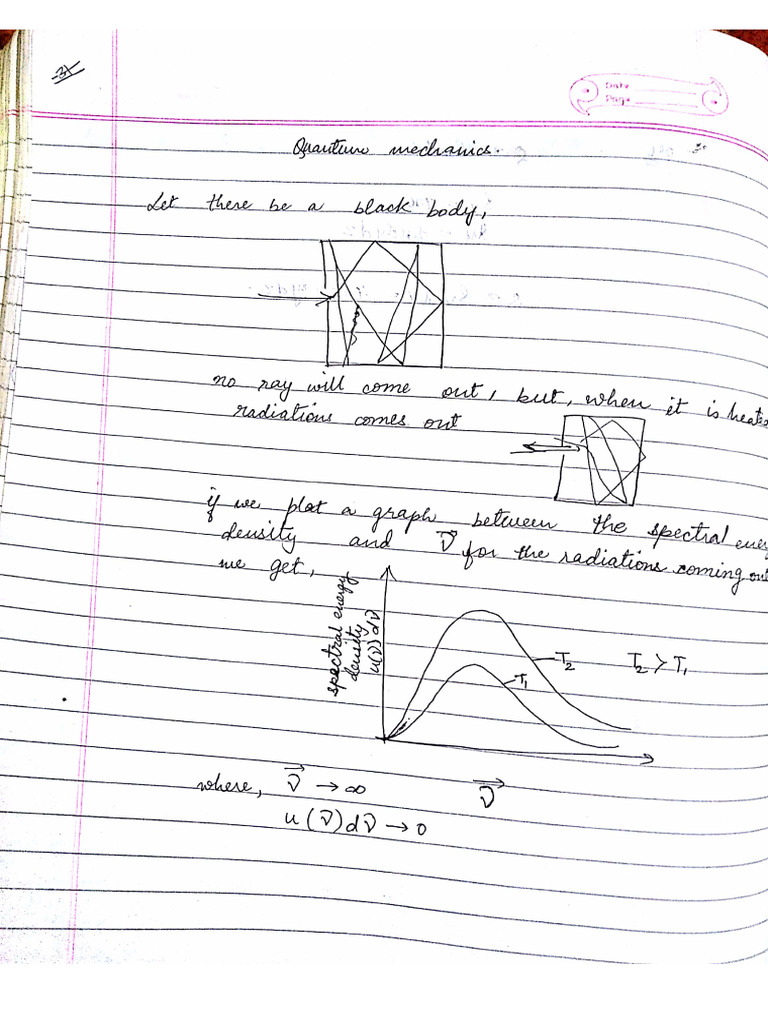 Date
Page
Quantum mechanics.
Let there be a black body,
no ray will come out, but, when it is heated
radiations comes out
if we plot a graph between the spectral energy
density and ν⃗ for the radiations coming out
we get,
spectral energy
density
u(ν̄)dν̄
T₂
T₂ > T₁
T₁
ν⃗
where, ν⃗ → ∞
u(ν̄)dν̄ → 0